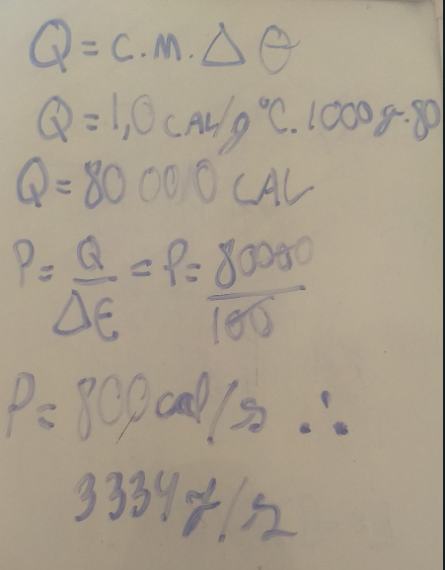 Q = C.M.Δθ
Q = 1,0 CAL/g°C.1000g.80
Q = 80 000 CAL
P = Q/Δt = P = 80000/100
P = 800 cal/s ∴
3334 J/s